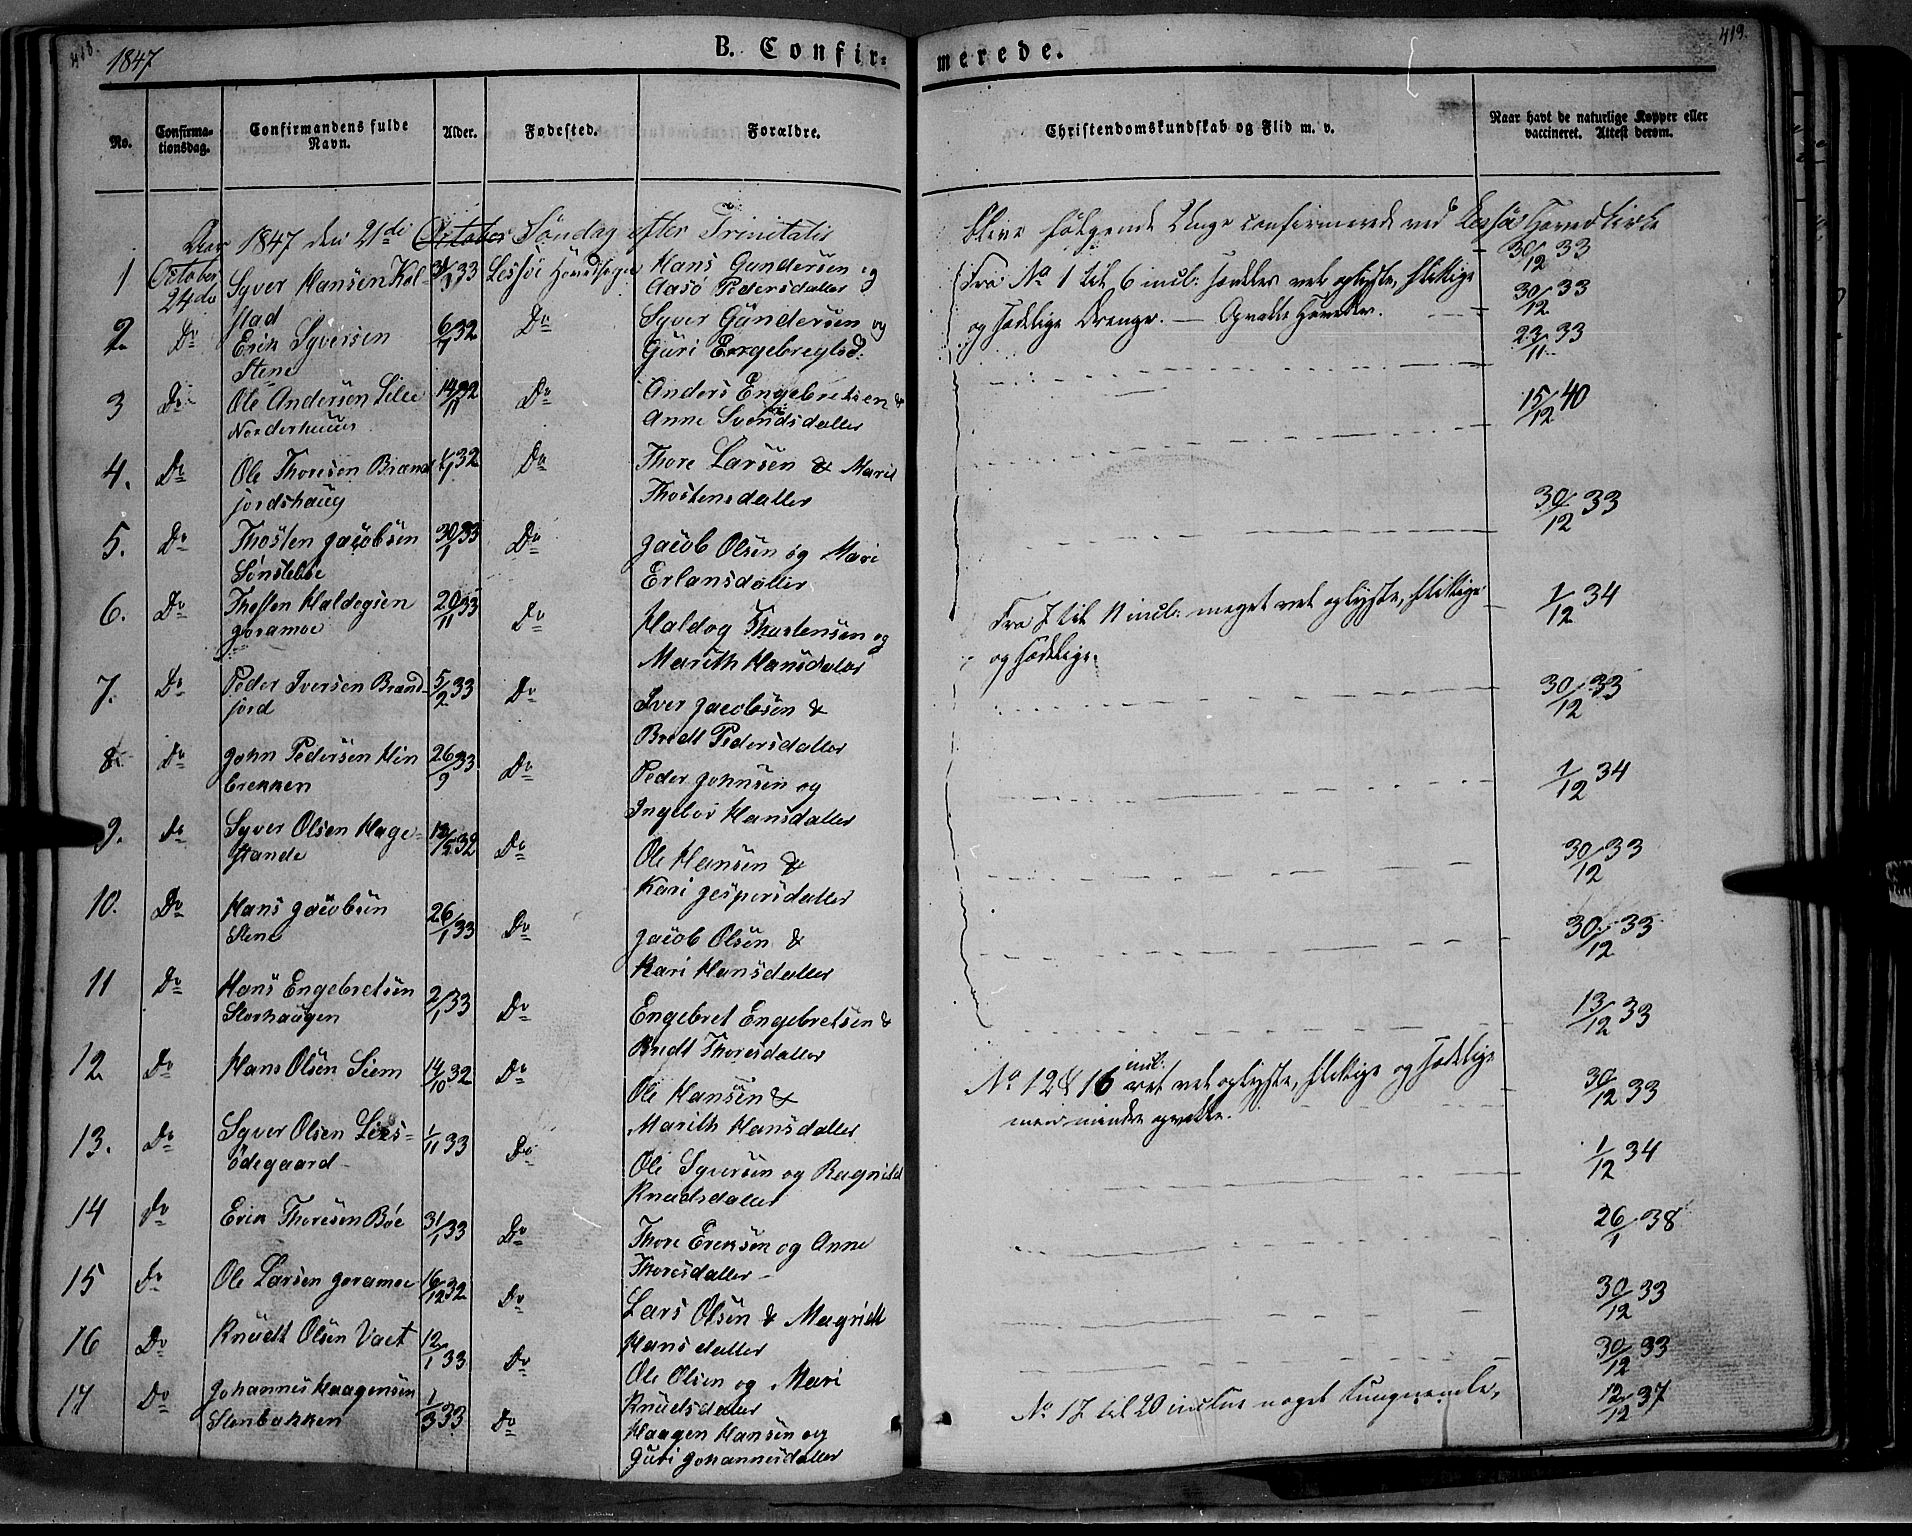 418.
1847
B. Confir=
merede.
419.
No.
Confirma-
tionsdag.
Confirmandens fulde
Navn.
Alder.
Fødested.
Forældre.
Christendomskundskab og Flid m. v.
Naar havt de naturlige Kopper eller
vaccineret. Attest derom.
Aar 1847 den 21de October Søndag efter Trinitatis
bleve følgende Unge confirmerede ved Lessøe Hovedkirke
1 October 24de Syver Hansen Kol-
stad 33 Lessøe Hovedsogn Hans Gundersen og
Aasø Pedersdatter
Fra No 1 til 6 incl: vel oplyste, flittige
og sædelige Drenge. — 30/12 33
2. Do Erik Syversen
Stene 6/1 32 Do Syver Gundersen og
Guri Engebregtsd: 30/12 33
23/11 33
3 Do Ole Andersen Lille
Norderhuus 14/11 32 Do Anders Engebretsen &
Anne Svendsdatter 15/12 40
4. Do Ole Thoresen Brand
jordshaug 32 Do Thore Larsen & Marit
Thostensdatter 30/12 33
5. Do Thosten Jacobsen
Sønsteboe 30/1 33 Do Jacob Olsen og Mari
Erlansdatter
6. Do Thosten Haldogsen
Joramoe 20/11 33 Do Haldog Thostensen og
Marith Hansdatter 1/12 34
Fra 7 til 11 incl: meget vel oplyste, flittige
og sædelige.
7. Do Peder Iversen Brand-
jord 5/2 33 Do Iver Jacobsen &
Bredt Pedersdatter 30/12 33
8. Do John Pedersen Hin
brekken 26/9 33 Do Peder Johnsen og
Ingebor Hansdatter 1/12 34
9. Do Syver Olsen Hage-
stande 32 Do Ole Hansen &
Kari Jespersdatter 30/12 33
10. Do Hans Jacobsen
Stene 26/1 33 Do Jacob Olsen &
Kari Hansdatter 30/12 33
11 Do Hans Engebretsen
Storhaugen 2/1 33 Do Engebret Engebretsen &
Bredt Thoresdatter 13/12 33
12. Do Hans Olsen Siem 14/10 32 Do Ole Hansen &
Marith Hansdatter 30/12 33
No 12 & 16 incl: ret vel oplyste, flittige og sædelige
men mindre opvakte.
13. Do Syver Olsen Lies-
ødegaard 1/11 33 Do Ole Syversen og Ragnild
Knudsdatter 1/12 34
14 Do Erik Thoresen Bøe 31/1 33 Do Thore Eriksen og Anne
Thoresdatter 26/1 38
15 Do Ole Larsen Joramoe 16/12 32 Do Lars Olsen & Magridt
Hansdatter 30/12 33
16 Do Knudt Olsen Vaet 12/1 33 Do Ole Olsen og Mari
Knudsdatter 30/12 33
17 Do Johannes Haagensen
Stenbakken 1/3 33 Do Haagen Hansen og
Guri Johannesdatter 12/12 37
No 17 til 20 inclus noget tungnemle,